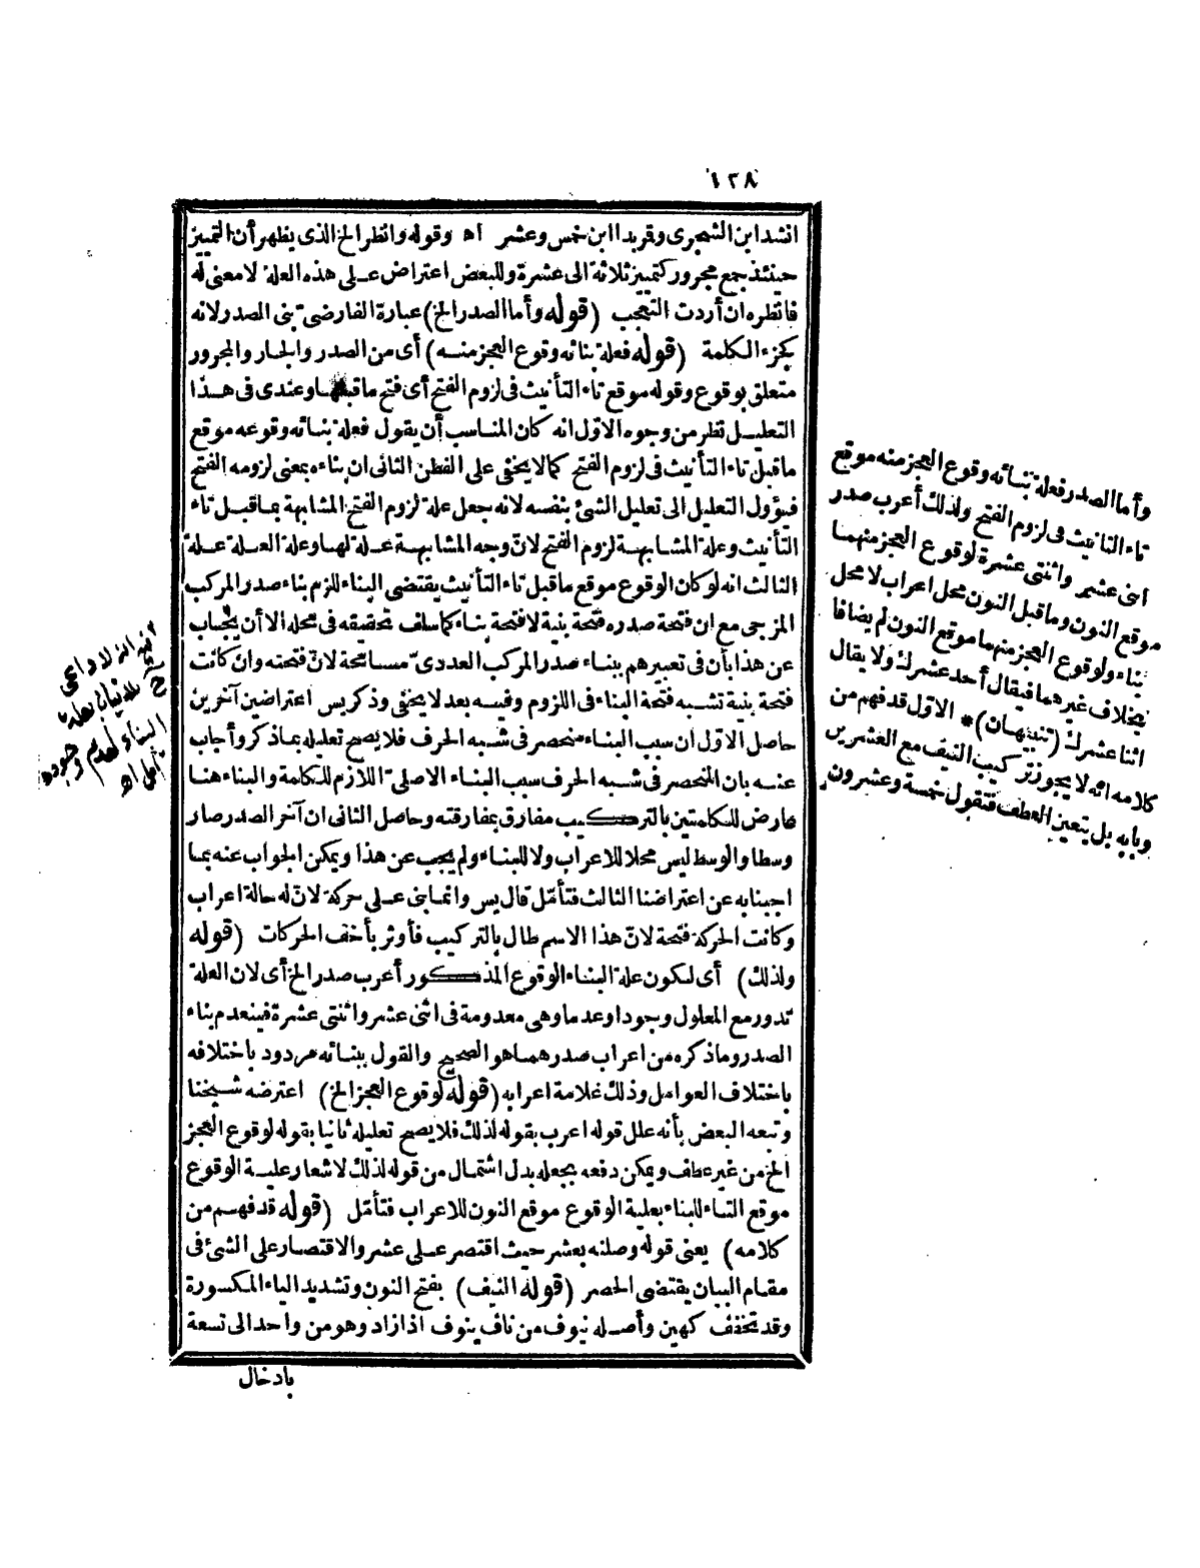 ١٢٨
انشد ابن الشجرى وقر بدا ابن خمس وعشر اه وقوله وانظر الخ الذى يظهر أن التمييز
حينئذ جمع مجرور كتمييز ثلاثة الى عشرة وللبعض اعتراض على هذه العلة لا معنى له
فانظره ان أردت التعجب (قوله وأما الصدر الخ) عبارة الفارضى بنى الصدر لانه
كجزء الكلمة (قوله فعلة بنائه وقوع العجز منه) أى من الصدر والجار والمجرور
متعلق بوقوع وقوله موقع تاء التأنيث فى لزوم الفتح أى فتح ما قبلها وعندى فى هذا
التعليل نظر من وجوه الاول انه كان المناسب أن يقول فعلة بنائه وقوعه موقع
ما قبل تاء التأنيث فى لزوم الفتح كما لا يخفى على الفطن الثانى ان بناءه بمعنى لزومه الفتح
فيؤول التعليل الى تعليل الشئ بنفسه لانه جعل علة لزوم الفتح المشابهة بما قبل تاء
التأنيث وعلة المشابهة لزوم الفتح لان وجه المشابهة علة لها وعلة العلة علة
الثالث انه لو كان الوقوع موقع ما قبل تاء التأنيث يقتضى البناء للزم بناء صدر المركب
المزجى مع ان فتحة صدره فتحة بنية لا فتحة بناء كما سلف تحقيقه فى محله الا أن يجاب
عن هذا بأن فى تعبيرهم ببناء صدر المركب العددى مسامحة لان فتحته وان كانت
فتحة بنية تشبه فتحة البناء فى اللزوم وفيه بعد لا يخفى وذكر يس اعتراضين آخرين
حاصل الاول ان سبب البناء منحصر فى شبه الحرف فلا يصح تعليله بما ذكر وأجاب
عنه بان المنحصر فى شبه الحرف سبب البناء الاصلى اللازم للكلمة والبناء هنا
عارض للكلمتين بالتركيب مفارق بمفارقته وحاصل الثانى ان آخر الصدر صار
وسطا والوسط ليس محلا للاعراب ولا للبناء ولم يجب عن هذا ويمكن الجواب عنه بما
اجبنا به عن اعتراضنا الثالث فتأمل قال يس وانما بنى على حركة لان له حالة اعراب
وكانت الحركة فتحة لان هذا الاسم طال بالتركيب فأوثر بأخف الحركات (قوله
ولذلك) أى لكون علة البناء الوقوع المذكور أعرب صدر الخ أى لان العلة
تدور مع المعلول وجودا وعدما وهى معدومة فى اثنى عشر واثنتى عشرة فينعدم بناء
الصدر وما ذكره من اعراب صدرهما هو الصحيح والقول ببنائه مردود باختلافه
باختلاف العوامل وذلك علامة اعرابه (قوله لوقوع العجز الخ) اعترضه شيخنا
وتبعه البعض بأنه علل قوله اعرب بقوله لذلك فلا يصح تعليله ثانيا بقوله لوقوع العجز
الخ من غير عطف ويمكن دفعه بجعله بدل اشتمال من قوله لذلك لاشعار علية الوقوع
موقع التاء للبناء بعلية الوقوع موقع النون للاعراب فتأمل (قوله قد فهم من
كلامه) يعنى قوله وصلنه بعشر حيث اقتصر على عشر والاقتصار على الشئ فى
مقام البيان يقتضى الحصر (قوله النيف) بفتح النون وتشديد الياء المكسورة
وقد تخفف كهين وأصله نيوف من ناف ينوف اذا زاد وهو من واحد الى تسعة
بادخال
وأما الصدر فعلة بنائه وقوع العجز منه موقع
تاء التأنيث فى لزوم الفتح ولذلك أعرب صدر
اثنى عشر واثنتى عشرة لوقوع العجز منهما
موقع النون وما قبل النون محل اعراب لا محل
بناء ولوقوع العجز منهما موقع النون لم يضافا
بخلاف غيرهما فيقال أحد عشرك ولا يقال
اثنا عشرك (تنبيهان)* الاول قد فهم من
كلامه انه لا يجوز تركيب النيف مع العشرين
وبابه بل يتعين العطف فتقول خمسة وعشرون
البناء لعدم وجوده
تأمل اه